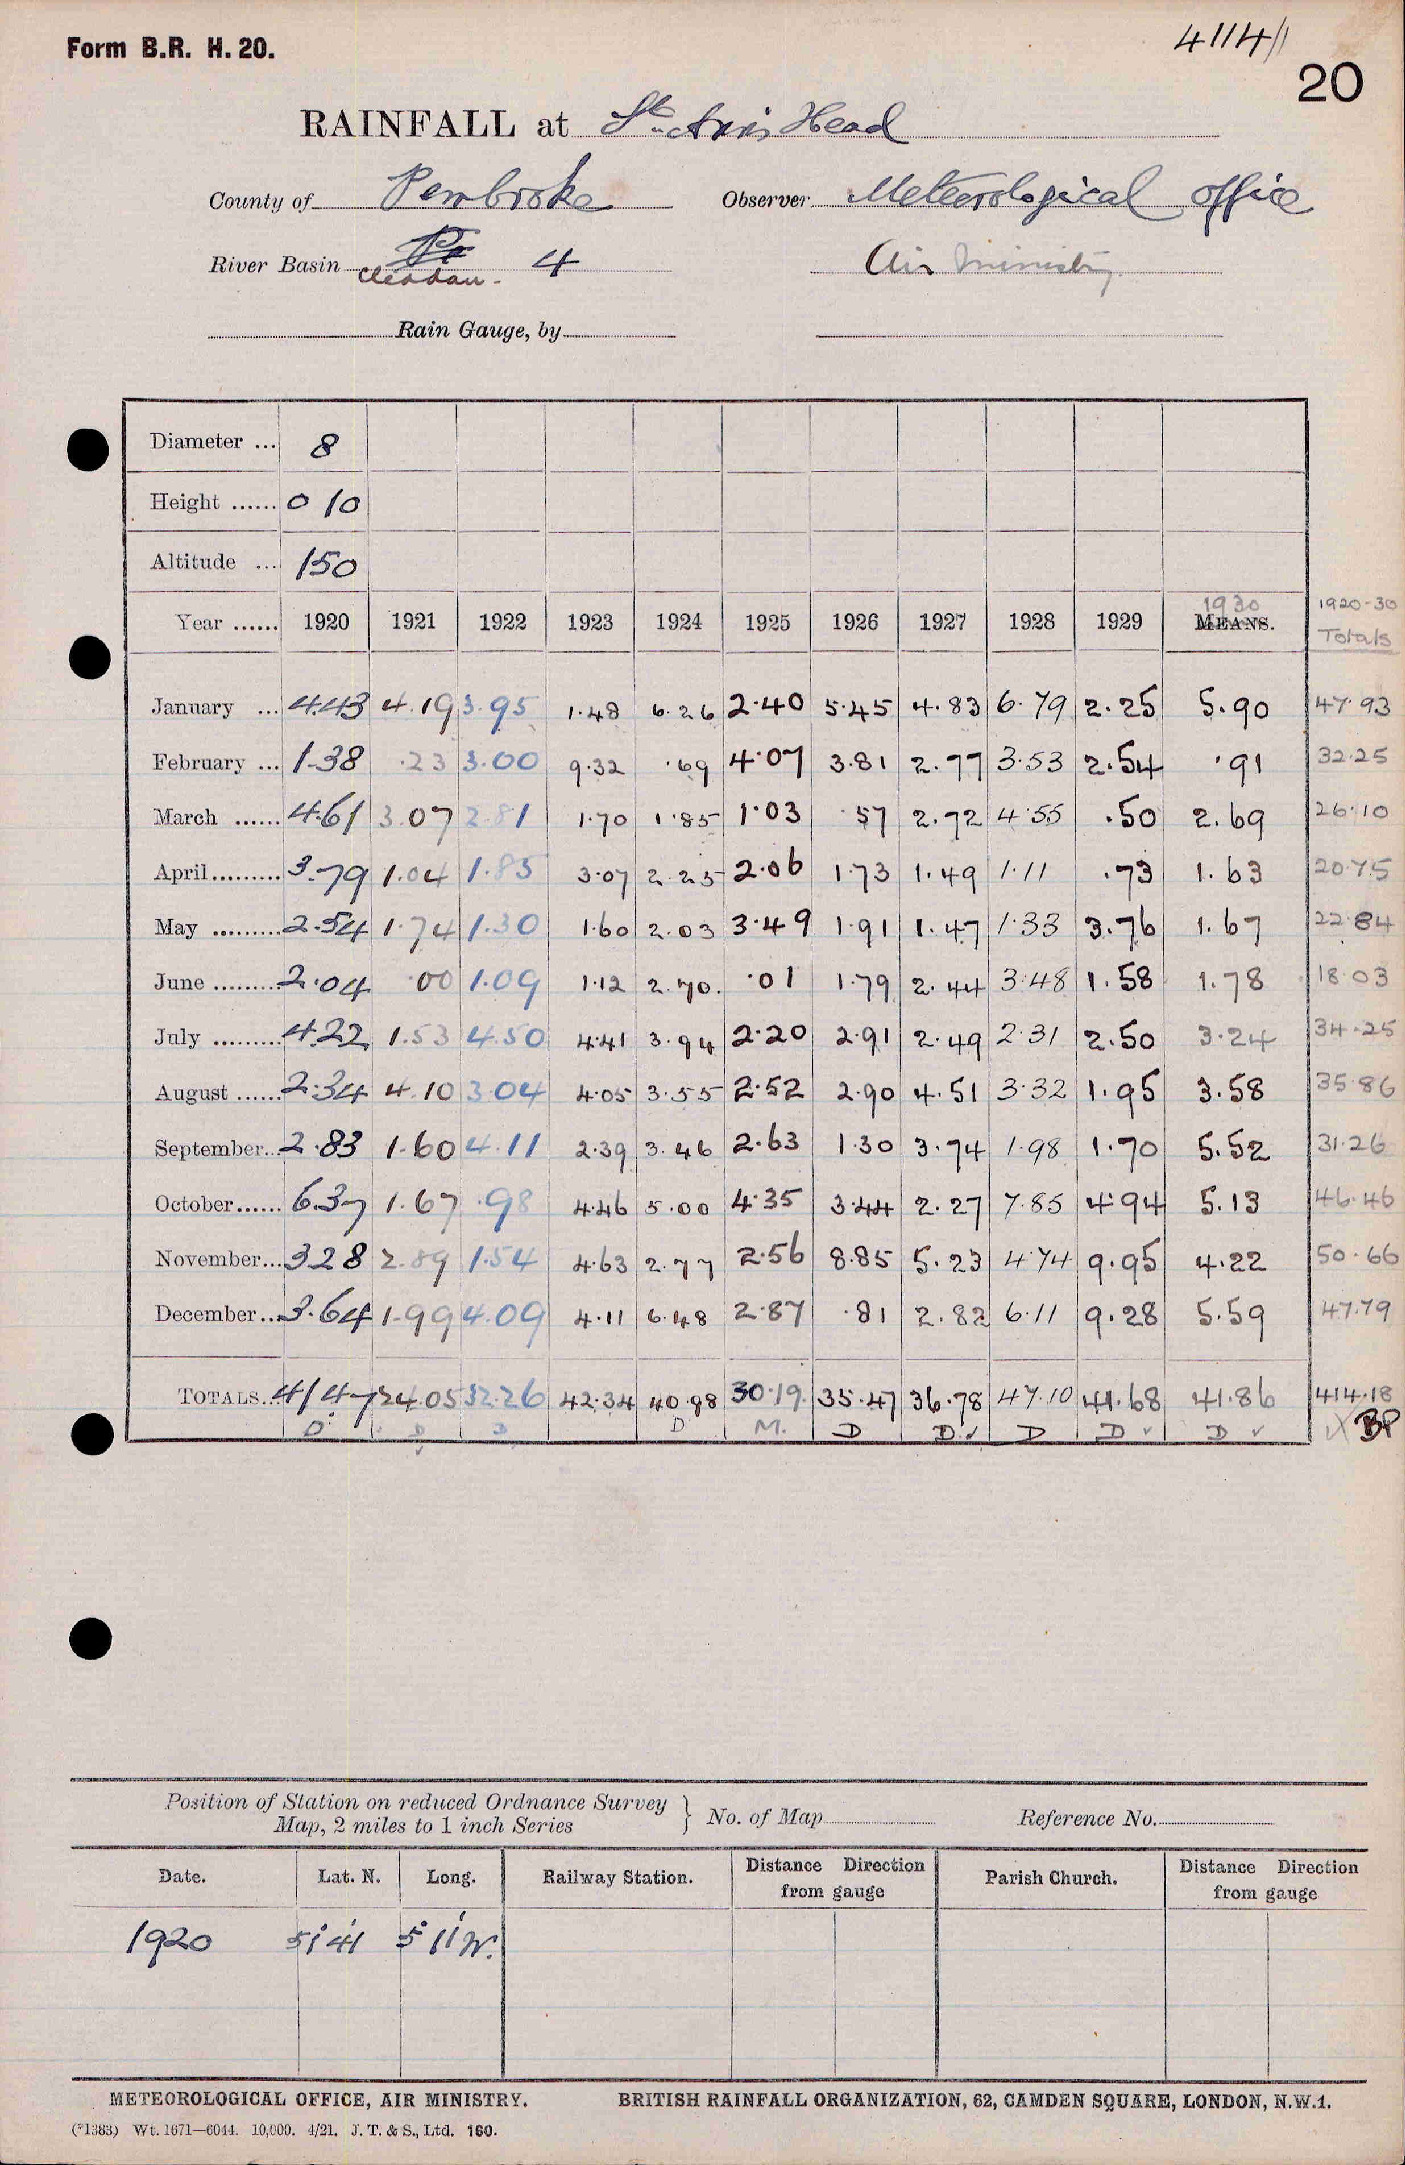 Form B.R. H. 20.
4114/1
20
RAINFALL at St. Ann's Head
County of Pembroke Observer Meteorological Office
River Basin Cleddau. 4 Air Ministry
Rain Gauge, by
Diameter ... 8
Height ...... 0 10
Altitude ... 150
Year ...... 1920 1921 1922 1923 1924 1925 1926 1927 1928 1929 MEANS. 1930 1920-30 Totals
January ... 4.43 4.19 3.95 1.48 6.26 2.40 5.45 4.83 6.79 2.25 5.90 47.93
February ... 1.38 .23 3.00 9.32 .69 4.07 3.81 2.77 3.53 2.54 .91 32.25
March ...... 4.61 3.07 2.81 1.70 1.85 1.03 .57 2.72 4.55 .50 2.69 26.10
April ......... 3.79 1.04 1.85 3.07 2.25 2.06 1.73 1.49 1.11 .73 1.63 20.75
May ......... 2.54 1.74 1.30 1.60 2.03 3.49 1.91 1.47 1.33 3.76 1.67 22.84
June ......... 2.04 .00 1.09 1.12 2.70 .01 1.79 2.44 3.48 1.58 1.78 18.03
July ......... 4.22 1.53 4.50 4.41 3.94 2.20 2.91 2.49 2.31 2.50 3.24 34.25
August ...... 2.34 4.10 3.04 4.05 3.55 2.52 2.90 4.51 3.32 1.95 3.58 35.86
September... 2.83 1.60 4.11 2.39 3.46 2.63 1.30 3.74 1.98 1.70 5.52 31.26
October...... 6.37 1.67 .98 4.46 5.00 4.35 3.44 2.27 7.85 4.94 5.13 46.46
November... 3.28 2.89 1.54 4.63 2.77 2.56 8.85 5.23 4.74 9.95 4.22 50.66
December ... 3.64 1.99 4.09 4.11 6.48 2.87 .81 2.82 6.11 9.28 5.59 47.79
TOTALS... 41.47 24.05 32.26 42.34 40.98 30.19 35.47 36.78 47.10 41.68 41.86 414.18
D D D D M. D D ✓ D D ✓ D ✓ BP
Position of Station on reduced Ordnance Survey Map, 2 miles to 1 inch Series } No. of Map Reference No.
Date. Lat. N. Long. Railway Station. Distance Direction from gauge Parish Church. Distance Direction from gauge
1920 51° 41' 5° 11' W.
METEOROLOGICAL OFFICE, AIR MINISTRY. BRITISH RAINFALL ORGANIZATION, 62, CAMDEN SQUARE, LONDON, N.W.1.
(*1383) Wt. 1671—6044. 10,000. 4/21. J. T. & S., Ltd. 160.